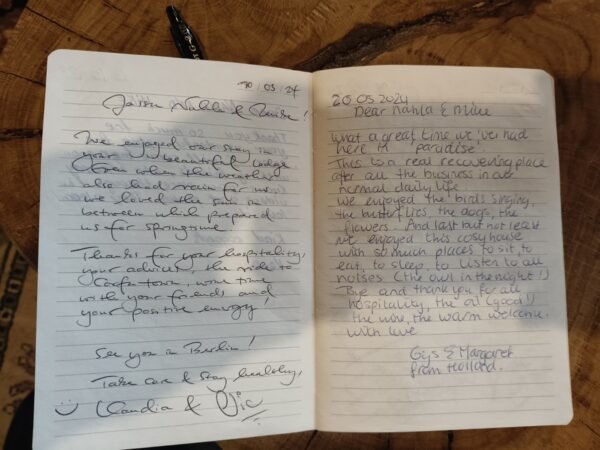 30/03/24
Nahla &
We enjoyed our stay in
your beautiful lodge
Even when the weather
also had rain for us
we loved the sun in
between which prepared
us for springtime.
Thanks for your hospitality,
your advices, the ride to
Corfu town, wine time
with your friends and
your positive energy!
See you in Berlin!
Take care & stay healthy,
Claudia &
20.05.2024
Dear Nahla & Mike
What a great time we've had
here in "paradise"
This is a real recovering place
after all the business in our
normal daily life.
We enjoyed the birds singing,
the butterflies, the dogs, the
flowers. And last but not least
we enjoyed this cosy house
with so much places to sit, to
eat, to sleep, to listen to all
noises (the owl in the night!)
Bye and thank you for all
hospitality, the oil (good!)
the wine, the warm welcome.
With love
Gys & Margaret
from Holland.